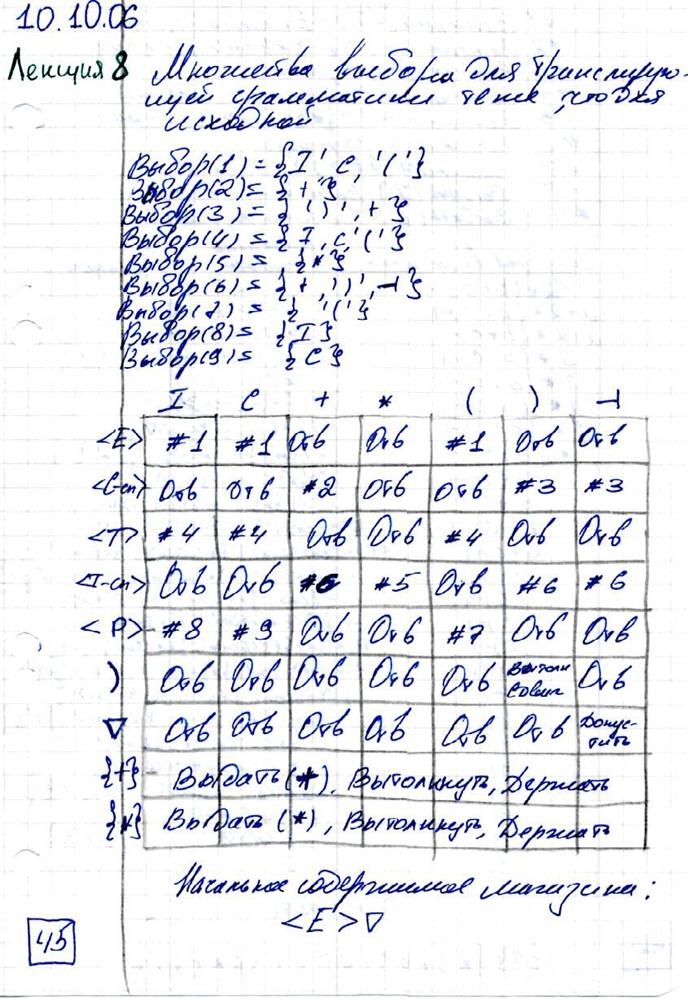 10.10.06
Лекция 8 Множества выбора для транслирую-
щей грамматики те же, что для
исходной
Выбор(1) = {I, C, '('}
Выбор(2) = {+}
Выбор(3) = {')', ⊣}
Выбор(4) = {I, C, '('}
Выбор(5) = {*}
Выбор(6) = {+, ')', ⊣}
Выбор(7) = {'('}
Выбор(8) = {I}
Выбор(9) = {C}
I C + * ( ) ⊣
<E> #1 #1 Отв Отв #1 Отв Отв
<E-сп> Отв Отв #2 Отв Отв #3 #3
<T> #4 #4 Отв Отв #4 Отв Отв
<T-сп> Отв Отв #6 #5 Отв #6 #6
<P> #8 #9 Отв Отв #7 Отв Отв
) Отв Отв Отв Отв Отв Вытолк Сдвиг Отв
∇ Отв Отв Отв Отв Отв Отв Допус-тить
{+} Выдать (*), Вытолкнуть, Держать
{*} Выдать (*), Вытолкнуть, Держать
Начальное содержимое магазина:
<E>∇
45